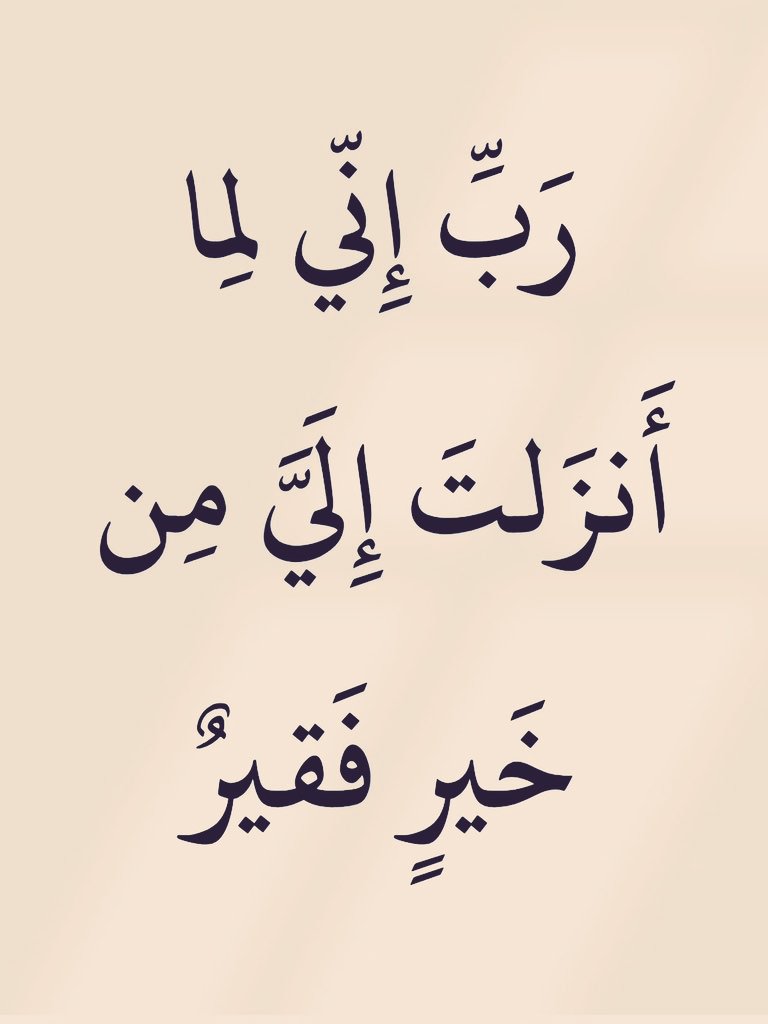 رَبِّ إِنّي لِما
أَنزَلتَ إِلَيَّ مِن
خَيرٍ فَقيرٌ